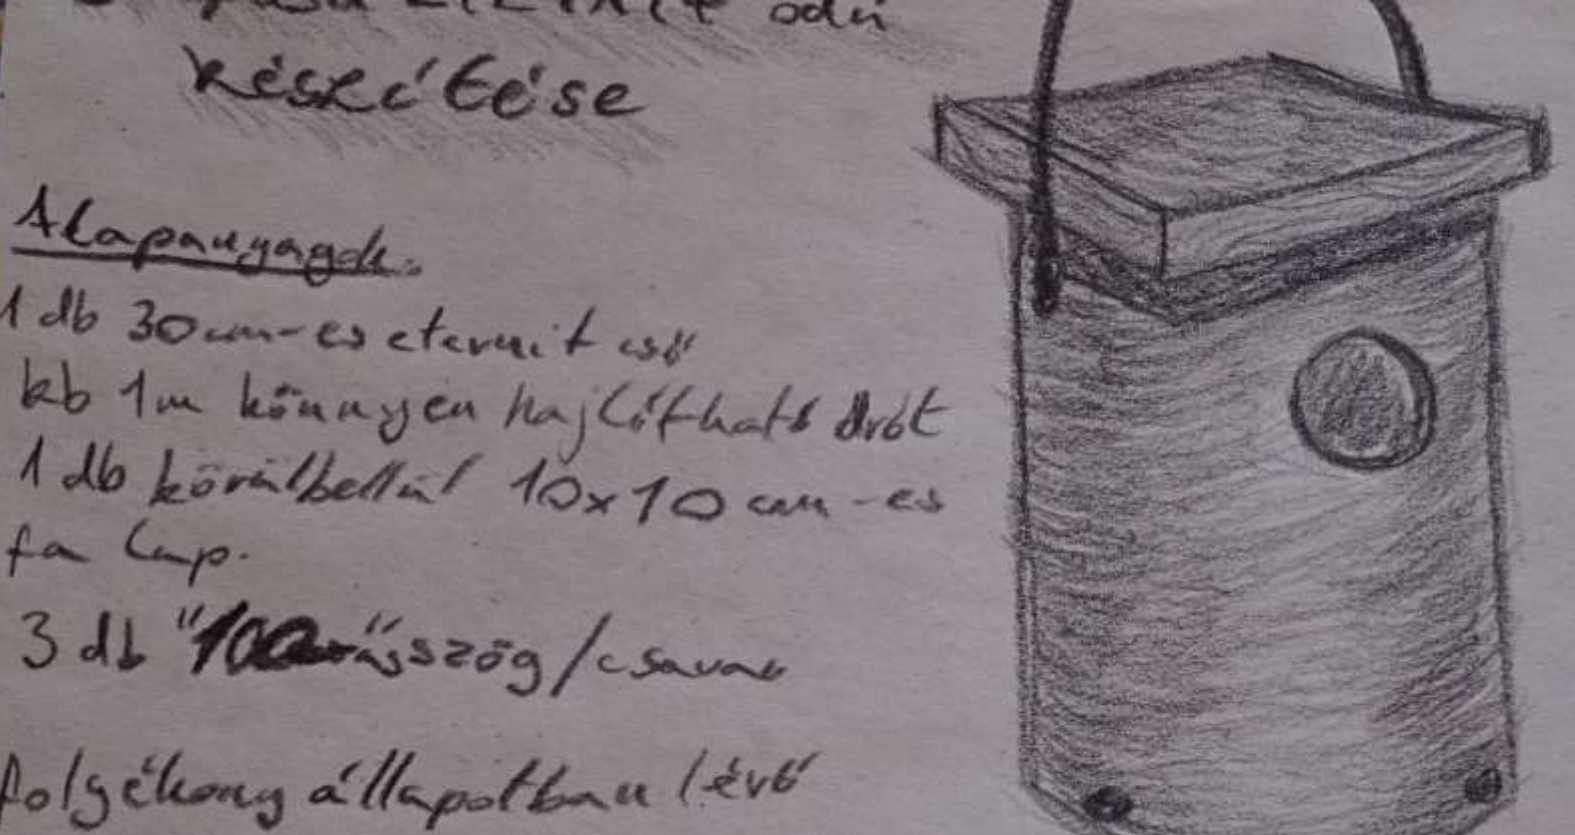 odú
készítése
Alapanyagok:
1 db 30cm-es eternit cső
kb 1m könnyen hajlítható drót
1 db körülbellül 10x10 cm-es
fa lap.
3 db "100-ás" szög/csavar
folyékony állapotban lévő